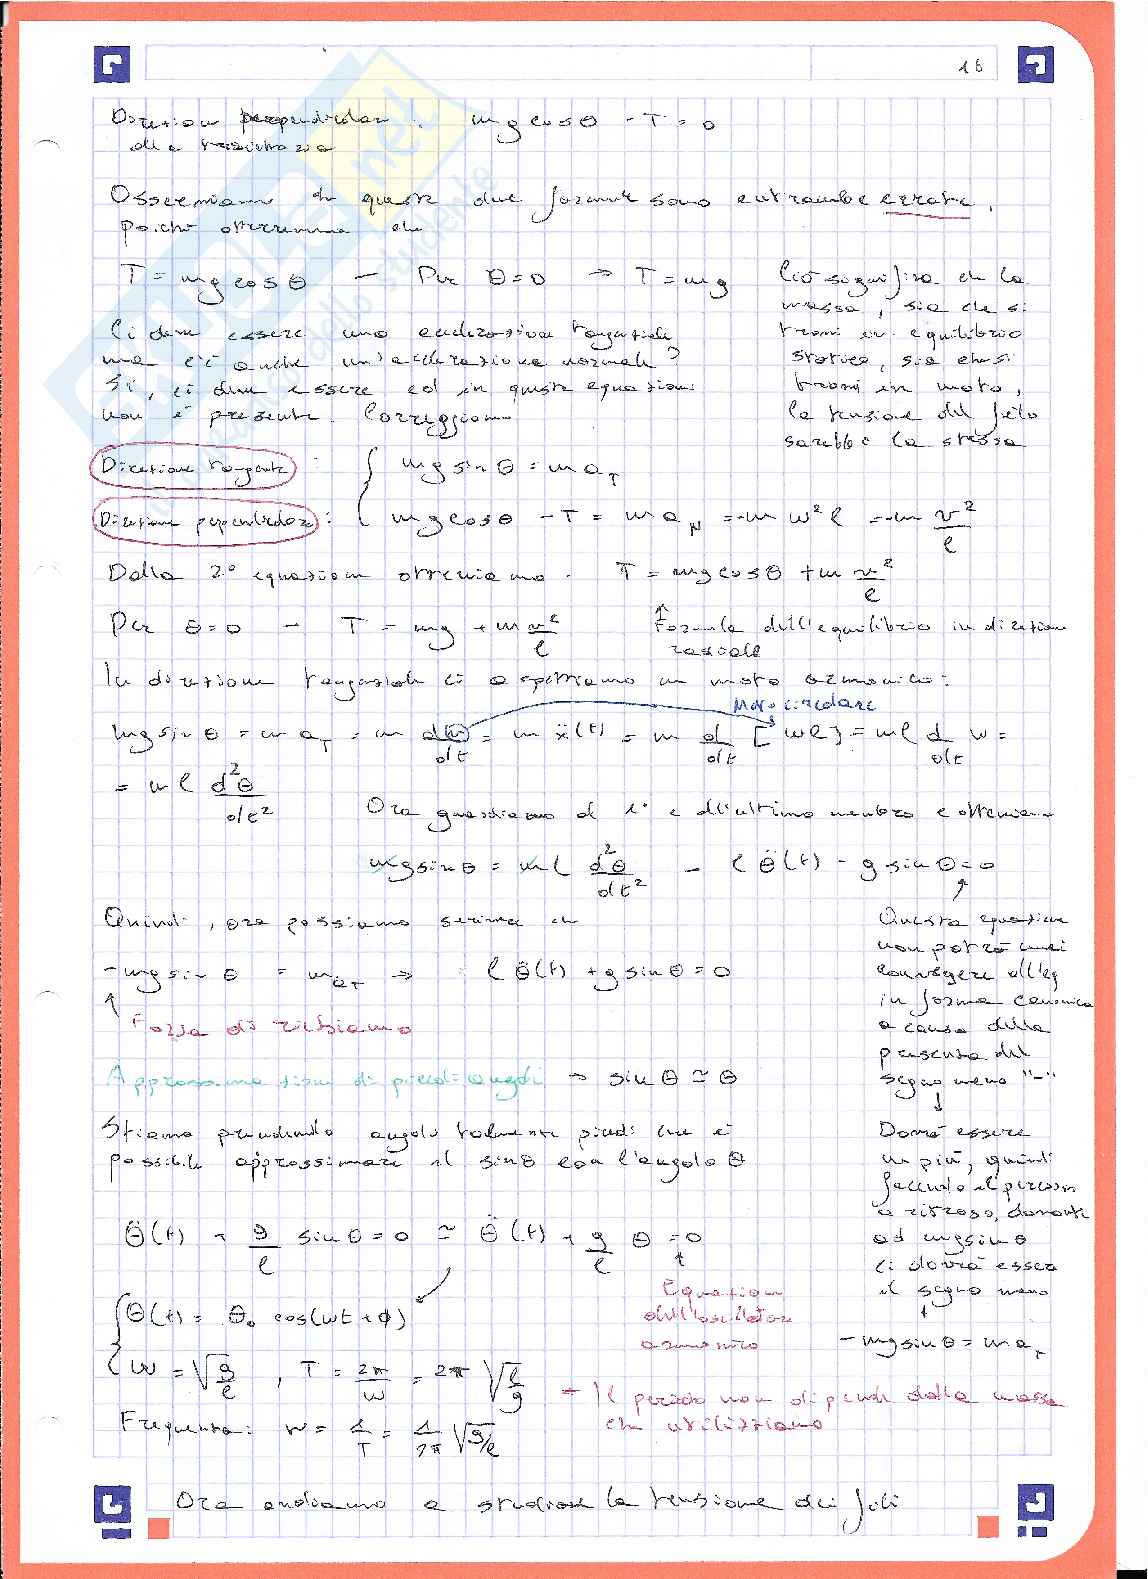 16
Direzione perpendicolare : mg cos θ - T = 0
alla traiettoria
Osserviamo che queste due formule sono entrambe errate,
poiché otterremmo che
T = mg cos θ — Per θ = 0 → T = mg
Ciò significa che la
massa, sia che si
trovi in equilibrio
statico, sia che si
trovi in moto,
la tensione del filo
sarebbe la stessa
Ci deve essere una accelerazione tangenziale
ma c'è anche un'accelerazione normale?
Sì, ci deve essere ed in queste equazioni
non è presente. Correggiamo
Direzione tangente : { mg sin θ = m a_T
Direzione perpendicolare : mg cos θ - T = m a_N = -m w² l = -m v²/l
Dalla 2° equazione otteniamo - T = mg cos θ + m v²/l
Per θ = 0 — T = mg + m v²/l
↑ Formula dell'equilibrio in direzione
radiale
In direzione tangenziale ci aspettiamo un moto armonico:
Moto circolare
mg sin θ = m a_T = m dv/dt = m ẍ(t) = m d/dt [wl] = ml d/dt w =
= ml d²θ/dt²
Ora guardiamo al 1° e all'ultimo membro e otteniamo
mg sin θ = ml d²θ/dt² — l θ̈(t) - g sin θ = 0
Quindi, ora possiamo scrivere che
-mg sin θ = m a_T ⇒ l θ̈(t) + g sin θ = 0
↑ Forza di richiamo
Questa equazione
non potrà mai
convergere all'eq
in forma canonica
a causa della
presenza del
segno meno "-"
↓
Dovrà essere
un più, quindi
facendo il percorso
a ritroso, davanti
ad mg sin θ
ci dovrà essere
il segno meno
↑
-mg sin θ = m a_T
Approssimazioni di piccoli angoli → sin θ ≃ θ
Stiamo prendendo angoli talmente piccoli che è
possibile approssimare il sin θ con l'angolo θ
θ̈(t) + g/l sin θ = 0 ≃ θ̈(t) + g/l θ = 0
↑
Equazione
dell'oscillatore
armonico
{ θ(t) = θ₀ cos(wt + ϕ)
w = √(g/l) , T = 2π/w = 2π √(l/g)
— Il periodo non dipende dalla massa
che utilizziamo
Frequenza: ν = 1/T = 1/2π √(g/l)
Ora andiamo a studiare la tensione dei fili